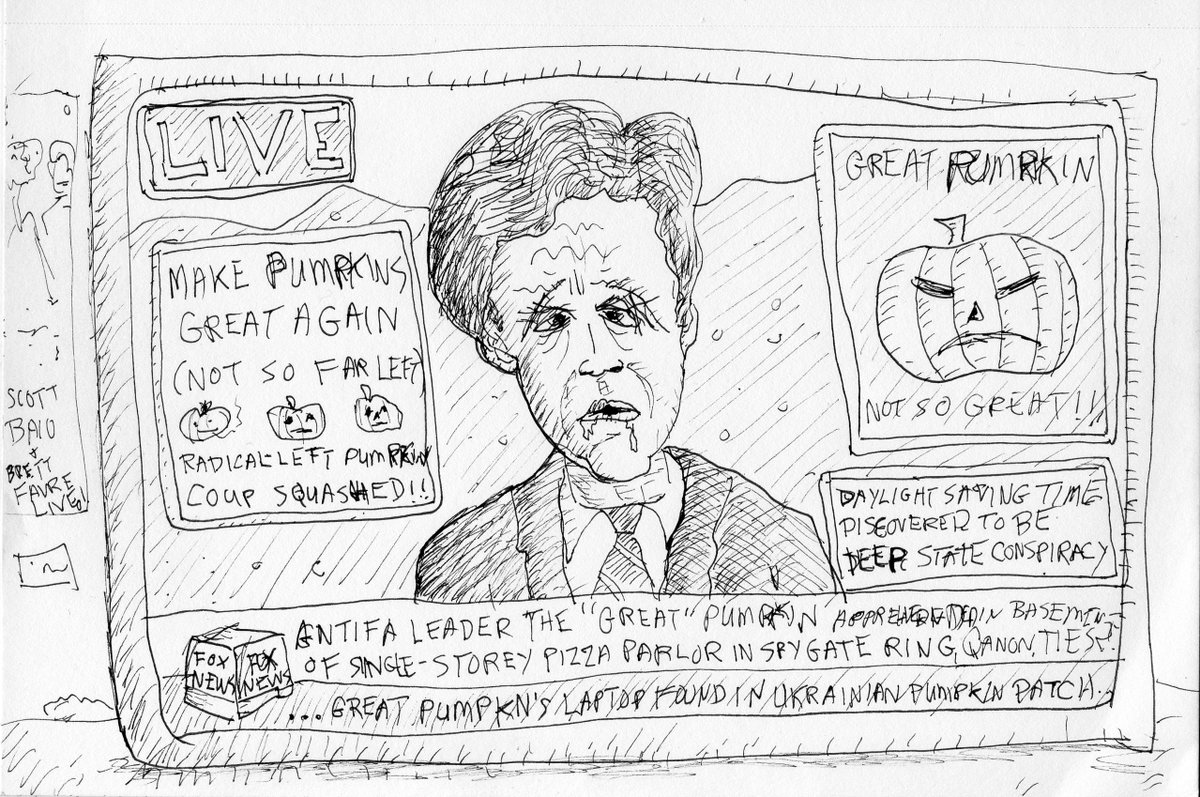 LIVE
MAKE PUMPKINS
GREAT AGAIN
(NOT SO FAR LEFT)
RADICAL-LEFT PUMPKIN
COUP SQUASHED!!
GREAT PUMPKIN
NOT SO GREAT!!
DAYLIGHT SAVING TIME
DISCOVERED TO BE
DEEP STATE CONSPIRACY
SCOTT
BAIO
+
BRETT
FAVRE
LIVE!
FOX
NEWS
FOX
NEWS
ANTIFA LEADER THE "GREAT" PUMPKIN APPREHENDED IN BASEMENT
OF SINGLE-STOREY PIZZA PARLOR IN SPYGATE RING, QANON, TIES?
...GREAT PUMPKN'S LAPTOP FOUND IN UKRAINIAN PUMPKIN PATCH